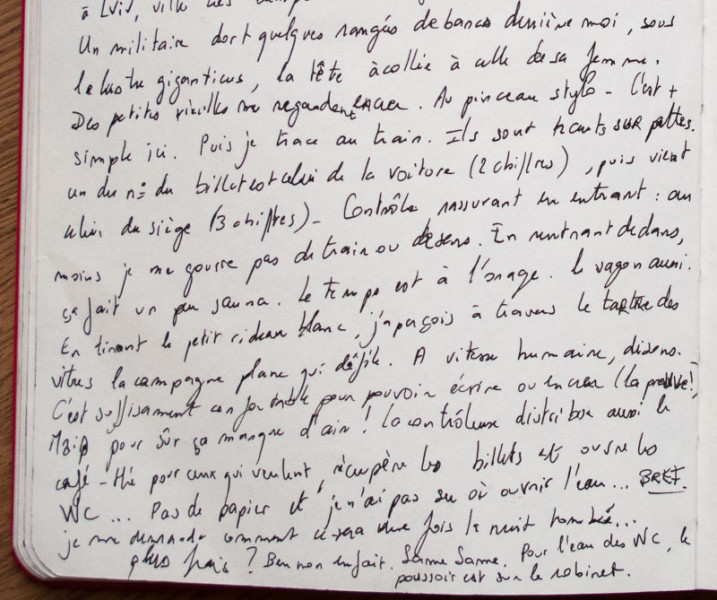 à Lviv, ville des
Un militaire dort quelques rangées de bancs derrière moi, sous
le lustre giganticus, la tête accollée à celle de sa femme.
Des petites vieilles me regardent encrer. Au pinceau stylo - C'est +
simple ici. Puis je trace au train. Ils sont hauts sur pattes.
un du n° du billet est celui de la voiture (2 chiffres), puis vient
celui du siège (3 chiffres) - Contrôle rassurant en entrant : au
moins je me gourre pas de train ou de sens. En rentrant dedans,
ça fait un peu sauna. Le temps est à l'orage. Le wagon aussi.
En tirant le petit rideau blanc, j'aperçois à travers le tartre des
vitres la campagne plane qui défile. A vitesse humaine, disons.
C'est suffisamment confortable pour pouvoir écrire ou encrer (la preuve!)
Mais pour sûr ça manque d'air ! La contrôleuse distribue aussi le
café - thé pour ceux qui veulent, récupère les billets et ouvre les
WC ... Pas de papier et je n'ai pas su où ouvrir l'eau ... BREF.
je me demande comment ce sera une fois la nuit tombée...
plus frais ? Ben non enfait. Same Same. Pour l'eau des WC, le
poussoir est sur le robinet.